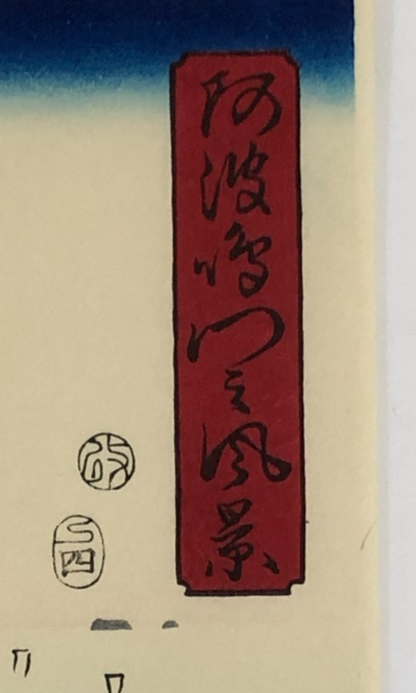 阿波鳴門之風景
改